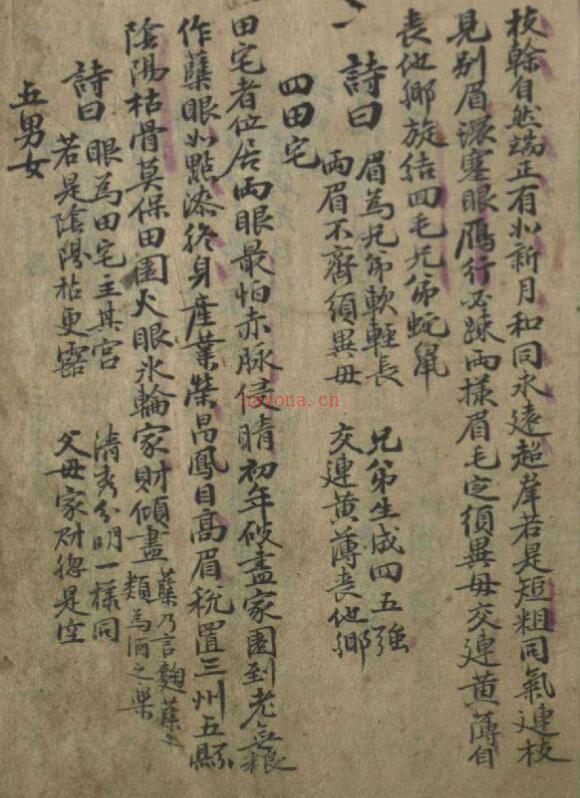 枝幹自然端正有如新月和同永遠超羣若是短粗同氣連枝
見別眉濃塞眼鴈行必踈兩樣眉毛定須異母交連黃薄自
丧他鄉旋結四毛兄弟蛇鼠
詩曰 眉為兄弟軟輕長 兄弟生成四五強
兩眉不齊須異母 交連黃薄丧他鄉
四田宅
田宅者位居兩眼最怕赤脉侵睛初年破盡家園到老無粮
作蘖眼如點漆終身產業榮昌鳳目高眉稅置三州五縣
陰陽枯骨莫保田園火眼氷輪家財傾盡 蘖乃言麯蘖之
類為酒之
詩曰 眼為田宅主其宮 清秀分明一樣同
若是陰陽枯更露 父母家財總是空
五男女